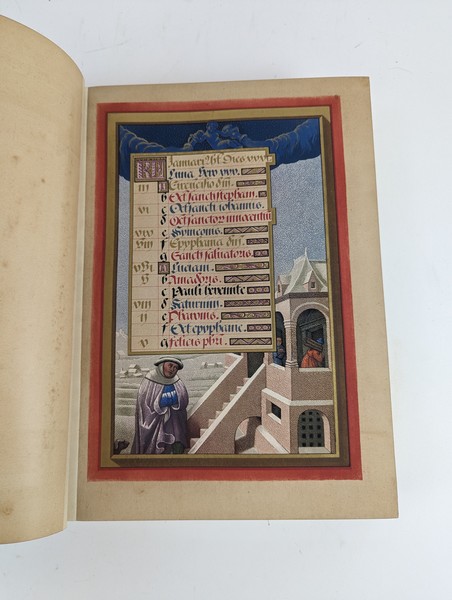 Januari⁹ hƷ Dies xxx.
Luna Vero xxx.
iii A Circuncisio dn̄i.
b Oct̄ sancti stephani.
vi c Oct̄ sancti iohannis.
d Oct̄ sanctor innocentiū
e Symeonis.
f Epyphania dn̄i.
g Sancti saluatoris.
A Luciani.
v b
c Pauli heremite
viii d Saturnini.
ii e
f Oct̄ epyphanie.
v g felicis pbr̄i.